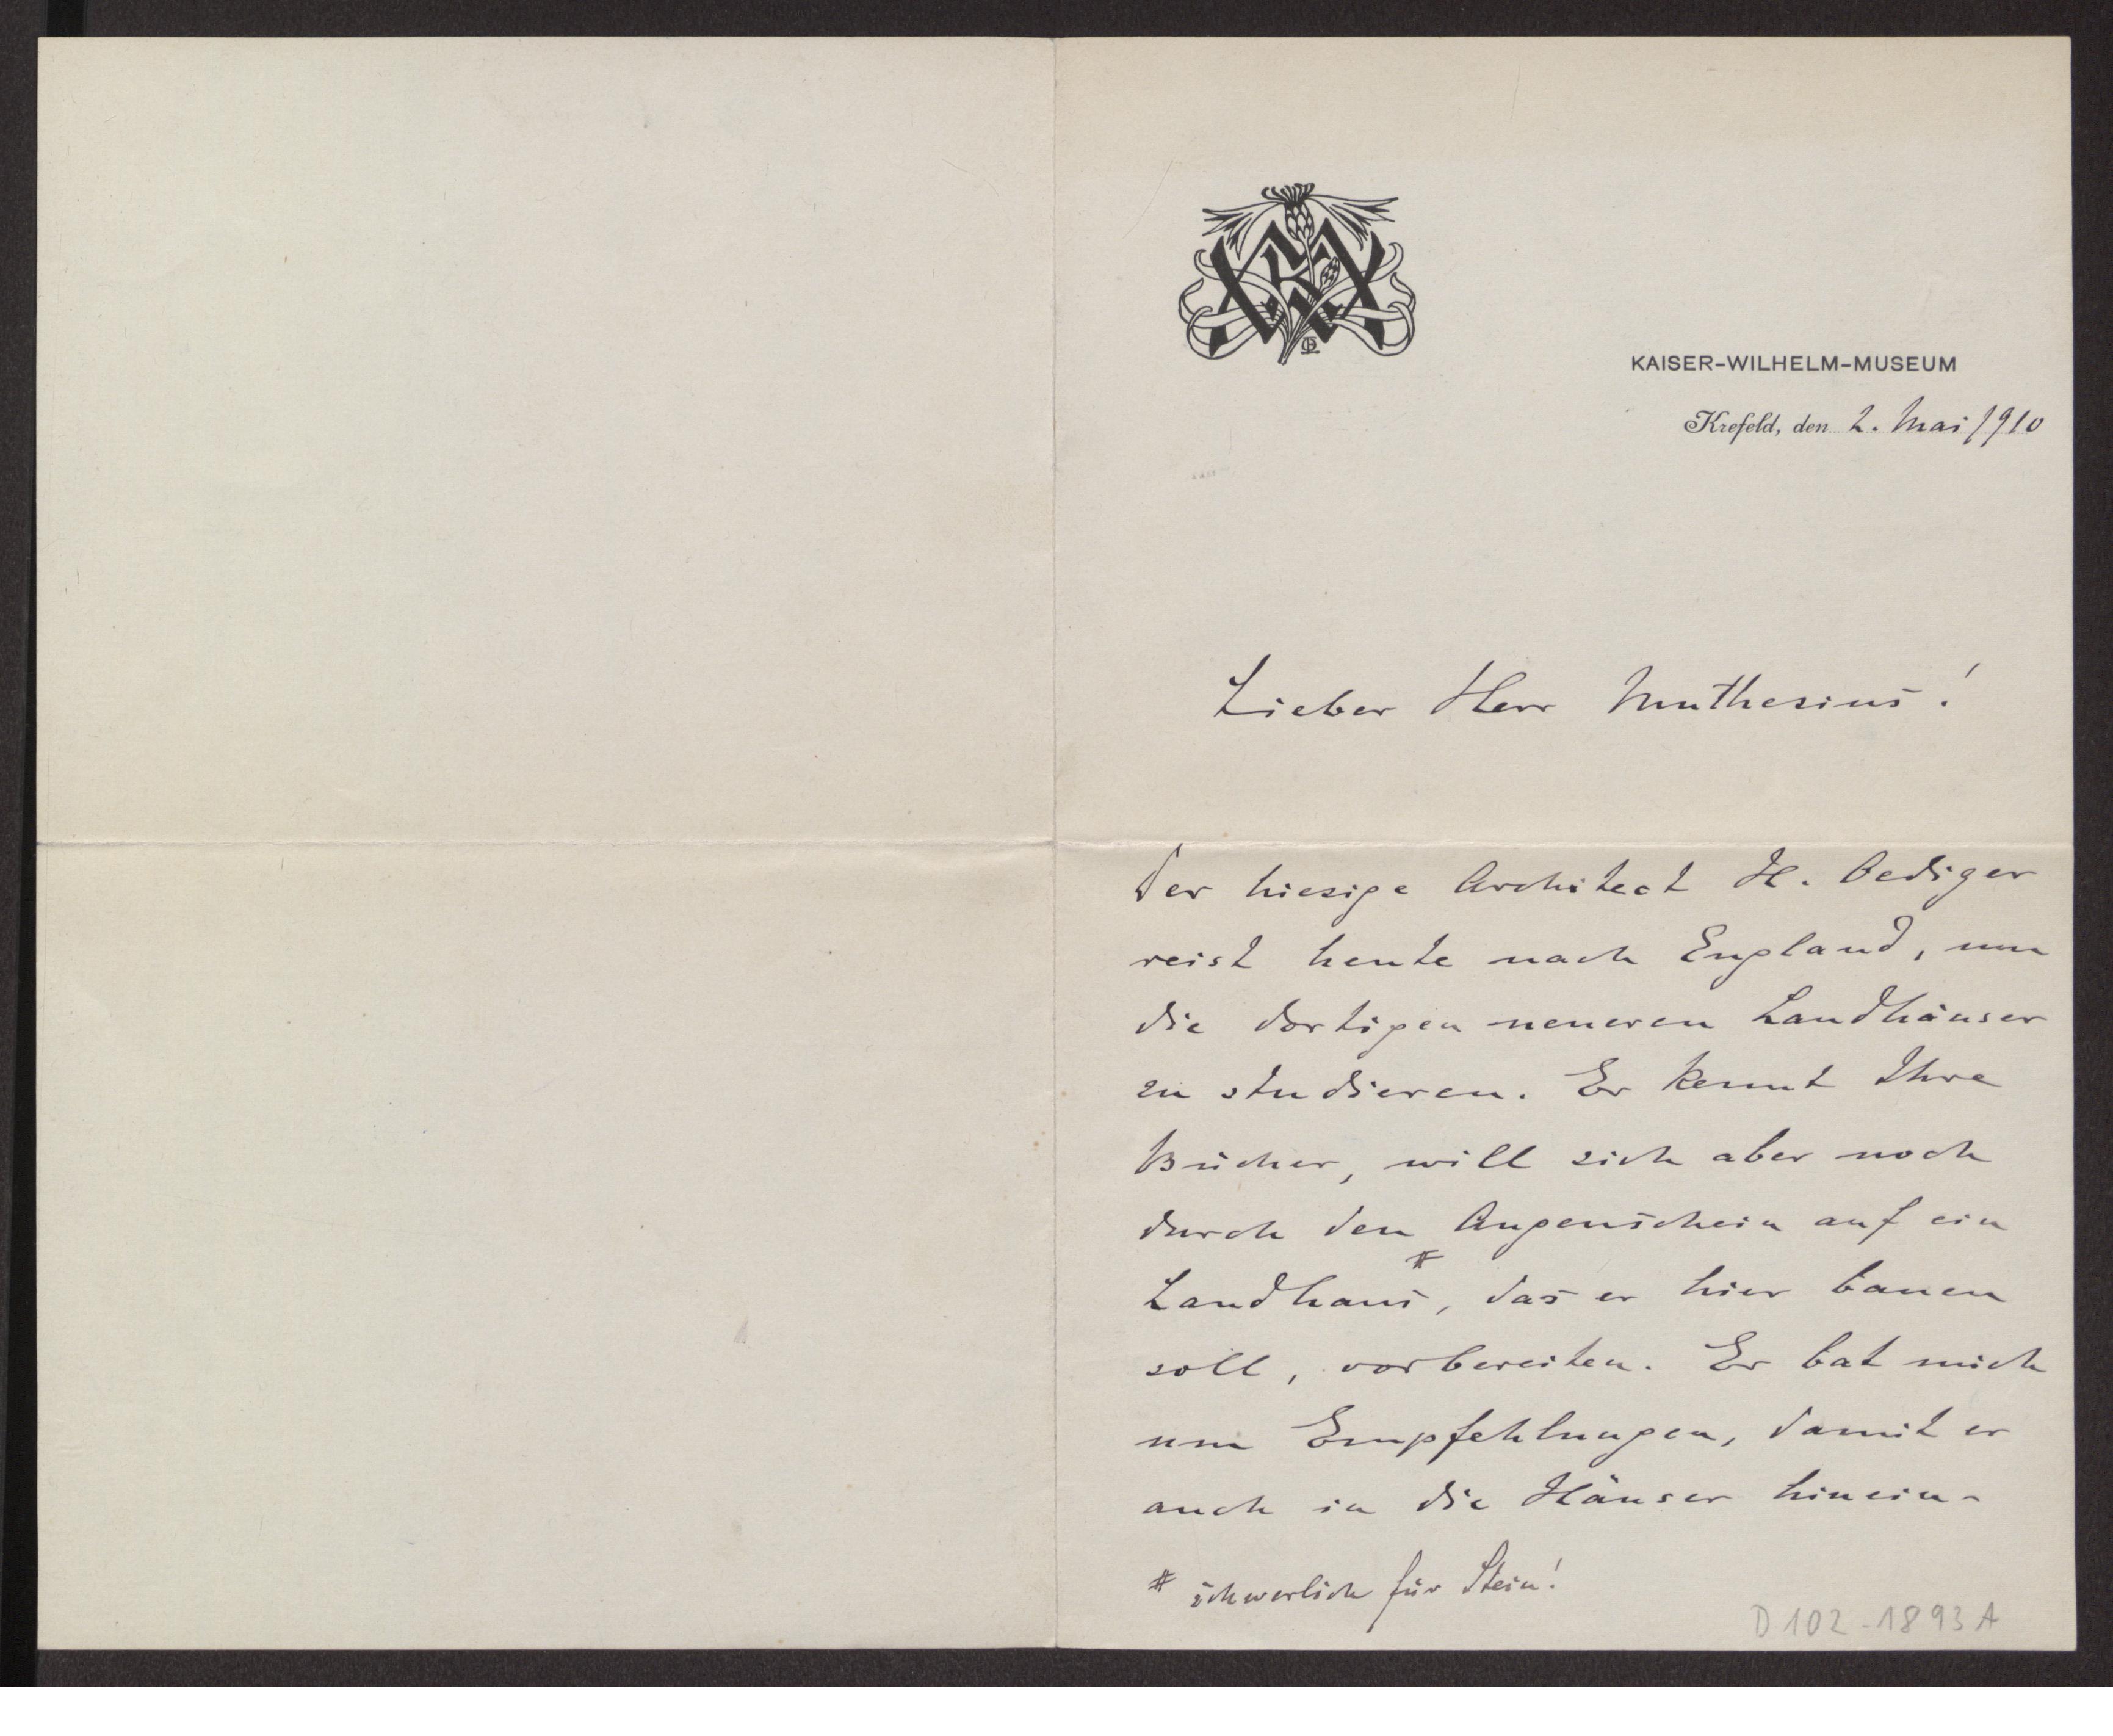 KAISER-WILHELM-MUSEUM
Krefeld, den 2. Mai 1910
Lieber Herr Muthesius!
Der hiesige Architect H. Oediger
reist heute nach England, um
die dortigen neueren Landhäuser
zu studieren. Er kennt Ihre
Bücher, will sich aber noch
durch den Augenschein auf ein
Landhaus #, das er hier bauen
soll, vorbereiten. Er bat mich
um Empfehlungen, damit er
auch in die Häuser hinein-
# schwerlich für Stein!
D 102-1893 A